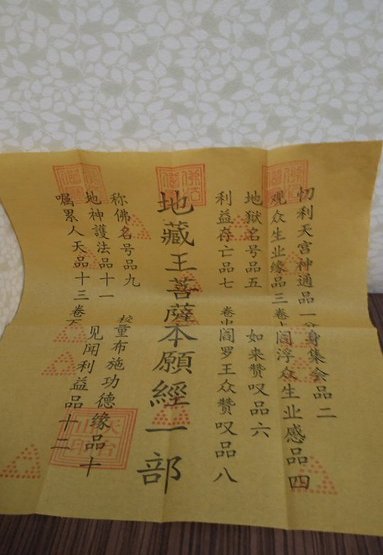 忉利天宫神通品一分身集会品二
观众生业缘品三卷上阎浮众生业感品四
地獄名号品五 如来赞叹品六
利益存亡品七 卷中阎罗王众赞叹品八
地藏王菩薩本願經一部
称佛名号品九 校量布施功德缘品十
地神護法品十一 见闻利益品十二
嘱累人天品十三卷下